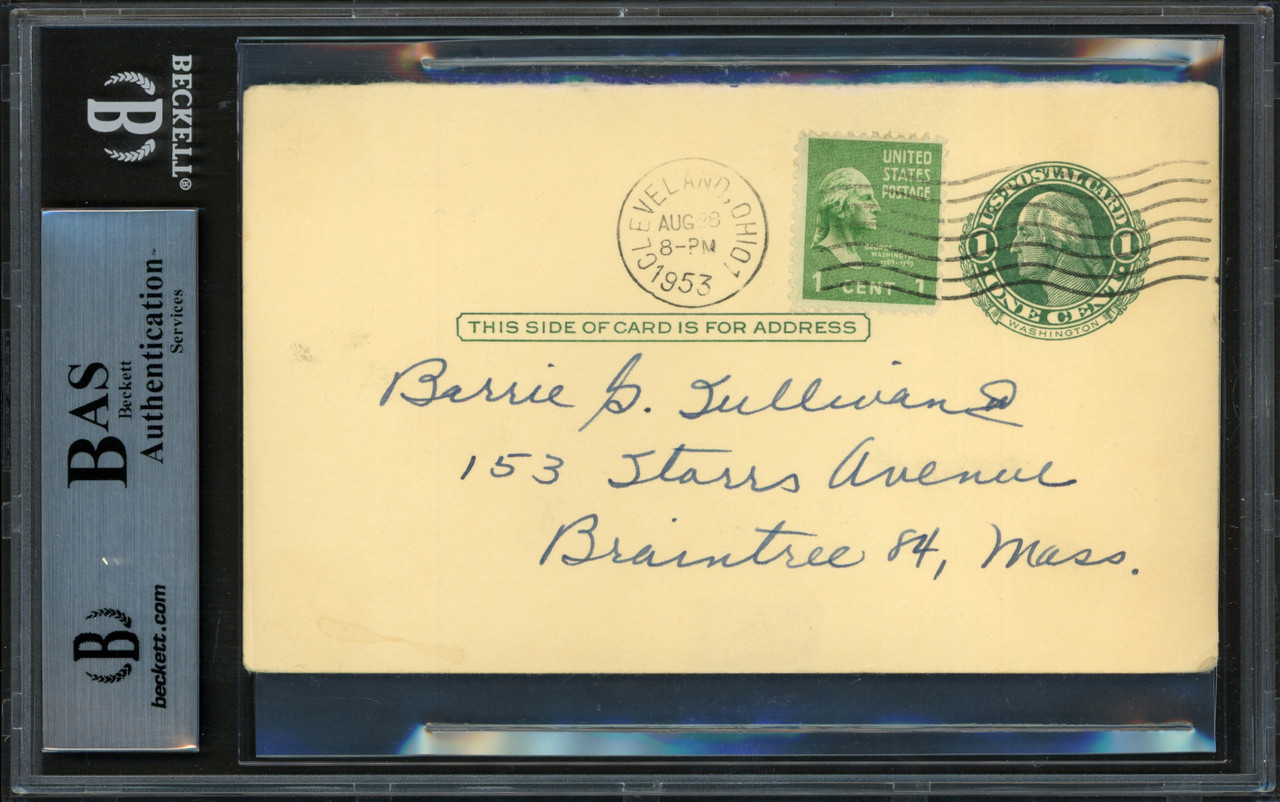 BECKETT®
BAS
Beckett
Authentication
Services
beckett.com
B
CLEVELAND, OHIO
AUG 28
8-PM
1953
UNITED
STATES
POSTAGE
GEORGE
WASHINGTON
1 CENT 1
U.S. POSTAL CARD
1 1
ONE CENT
WASHINGTON
THIS SIDE OF CARD IS FOR ADDRESS
Barrie G. Sullivan
153 Starrs Avenue
Braintree 84, Mass.